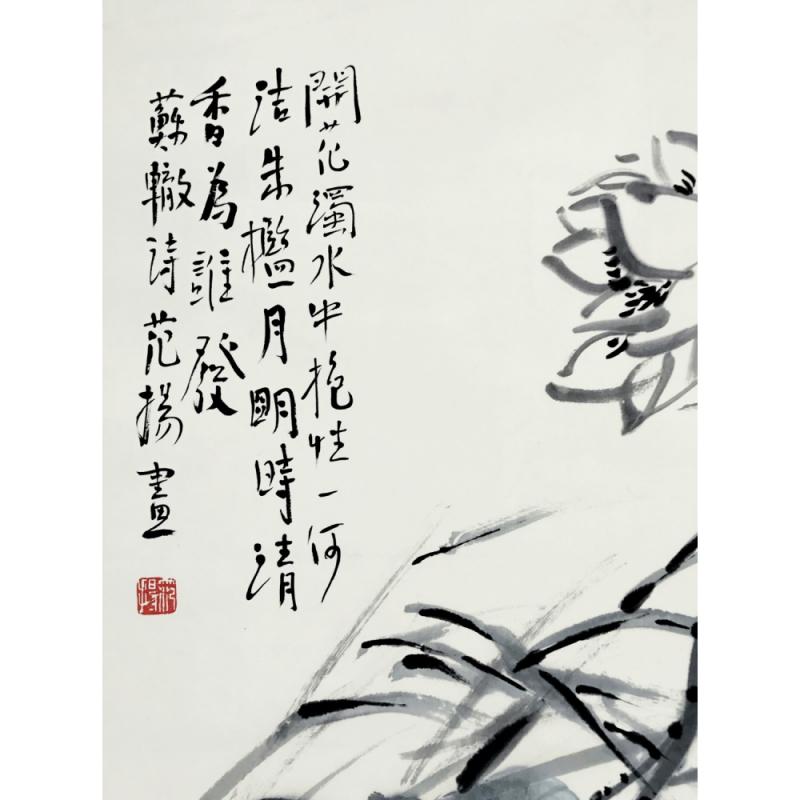 開花濁水中抱性一何
洁朱檻月明時清
香為誰發
蘇轍詩范揚畫
范揚